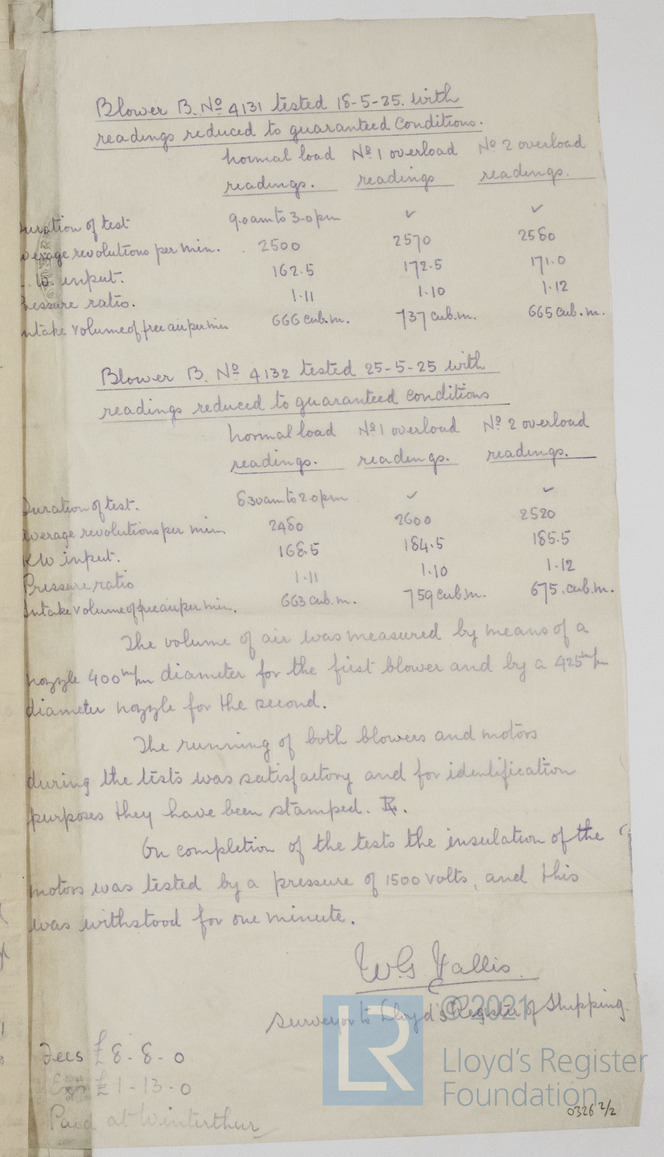 Blower B. Nº 4131 tested 18-5-25. with
readings reduced to guaranteed conditions.
normal load Nº 1 overload Nº 2 overload
readings. readings readings.
Duration of test 9.0am to 3.0pm ✓ ✓
average revolutions per min. 2500 2570 2580
input. 162.5 172.5 171.0
Pressure ratio. 1.11 1.10 1.12
Intake volume of free air per min 666 cub.m. 737 cub.m. 665 cub.m.
Blower B. Nº 4132 tested 25-5-25 with
readings reduced to guaranteed conditions
normal load Nº 1 overload Nº 2 overload
readings. readings. readings.
Duration of test. 8.30am to 2.0pm ✓ ✓
average revolutions per min. 2480 2600 2520
KW input. 168.5 184.5 185.5
Pressure ratio 1.11 1.10 1.12
Intake volume of free air per min. 663 cub.m. 759 cub.m. 675. cub.m.
The volume of air was measured by means of a
nozzle 400 m/m diameter for the first blower and by a 425 m/m
diameter nozzle for the second.
The running of both blowers and motors
during the tests was satisfactory and for identification
purposes they have been stamped.
On completion of the tests the insulation of the
motors was tested by a pressure of 1500 volts, and this
was withstood for one minute.
W G Vallis.
Surveyor to Lloyd's Register of Shipping.
Fees £8-8-0
£1-13-0
Paid at Winterthur
LR
©2021
Lloyd's Register
Foundation
0326 2/2